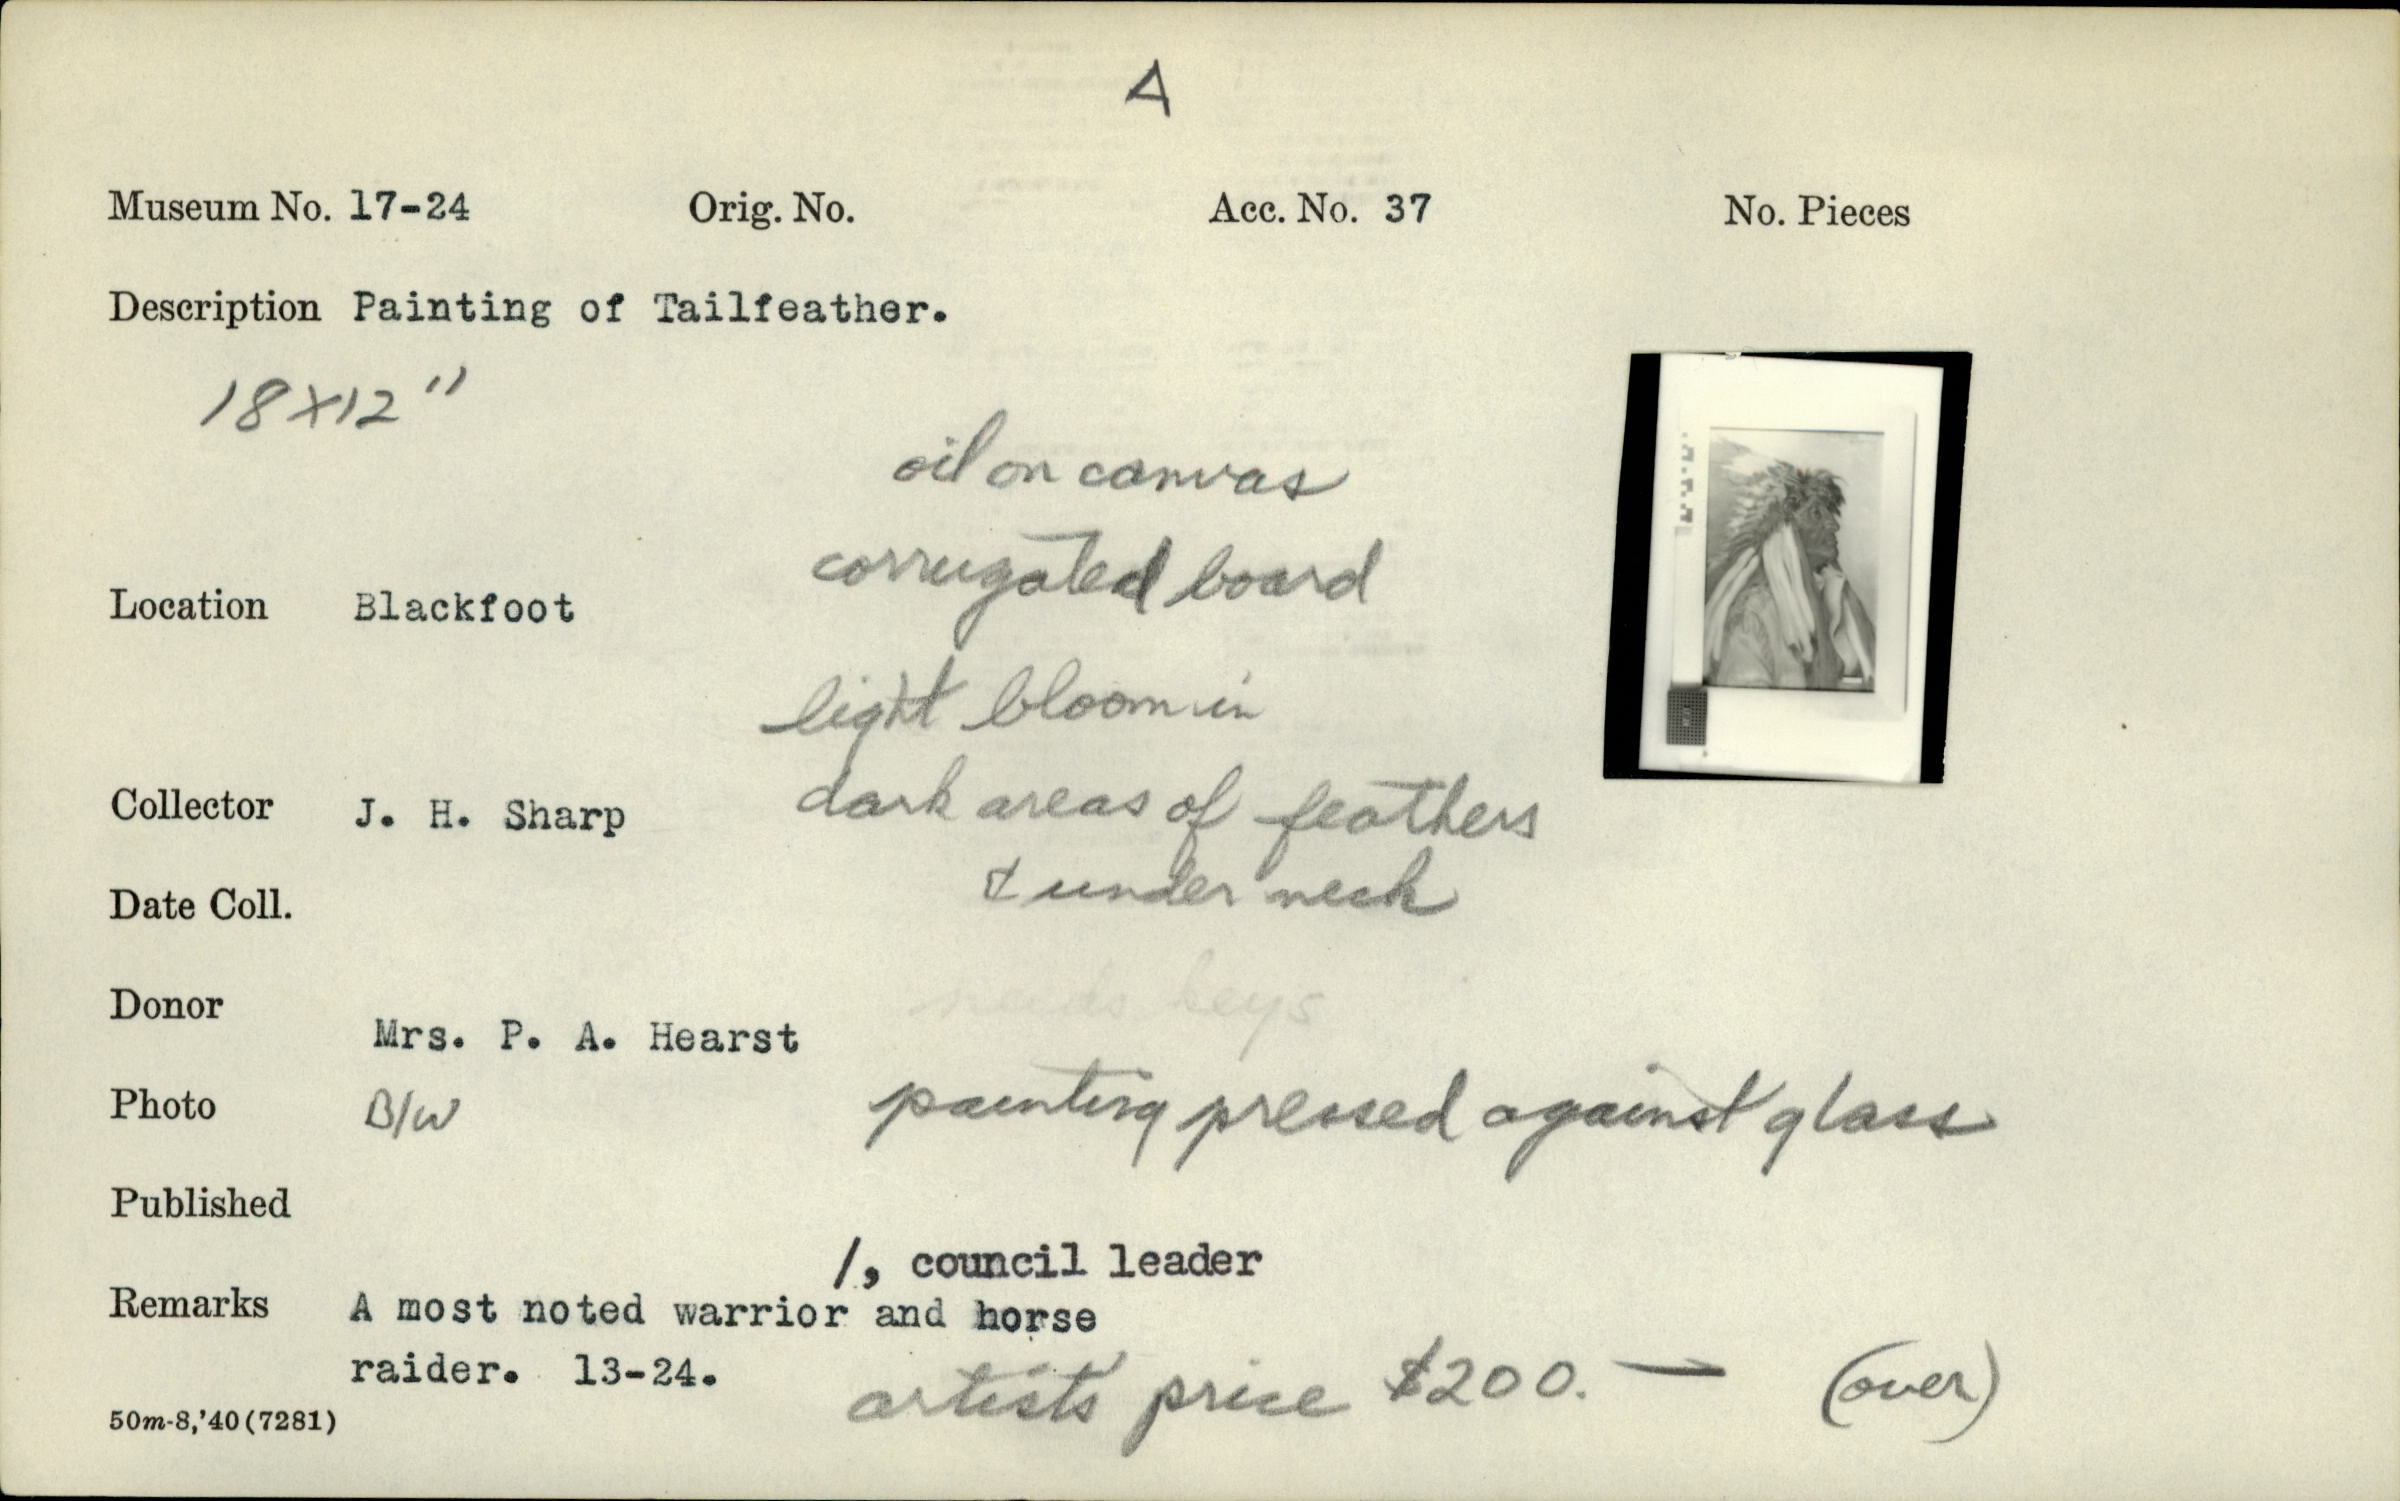 A
Museum No. 17-24 Orig. No. Acc. No. 37 No. Pieces
Description Painting of Tailfeather.
18x12"
oil on canvas
corrugated board
Location Blackfoot
light bloom in
Collector J. H. Sharp
dark areas of feathers
& under neck
Date Coll.
needs keys
Donor
Mrs. P. A. Hearst
Photo B/W
painting pressed against glass
Published
/, council leader
Remarks A most noted warrior and horse
raider. 13-24.
artists' price $200. — (over)
50m-8,'40(7281)